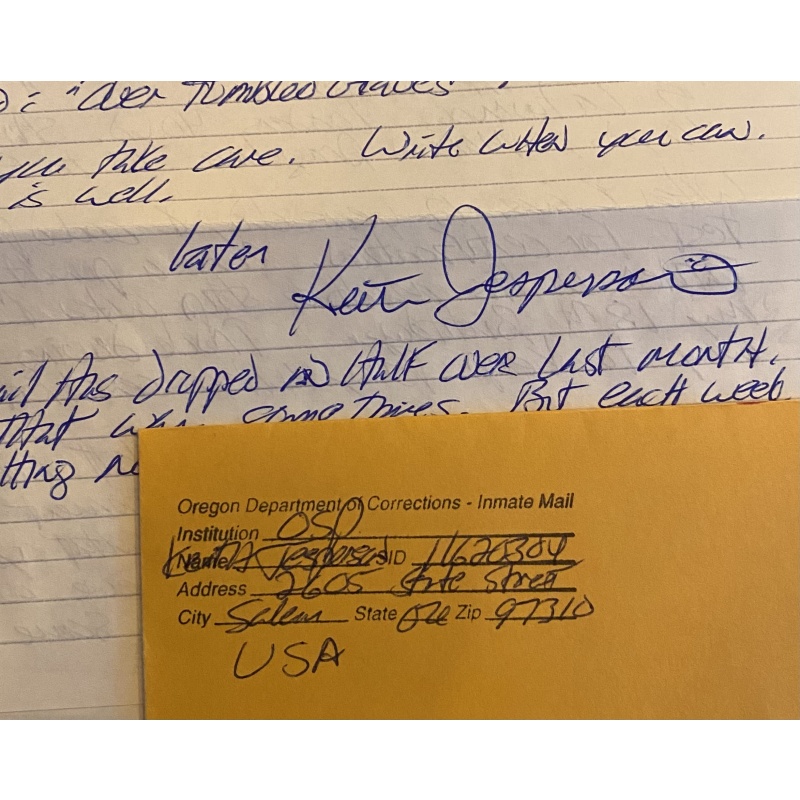 : "Over Tumbled Graves".
you take care. Write when you can.
is well.
Later Keith Jesperson
has dropped in Half over last month.
That sometimes. But each week
Oregon Department of Corrections - Inmate Mail
Institution OSP
Name Keith Jesperson SID 11620304
Address 2605 State Street
City Salem State ORE Zip 97310
USA